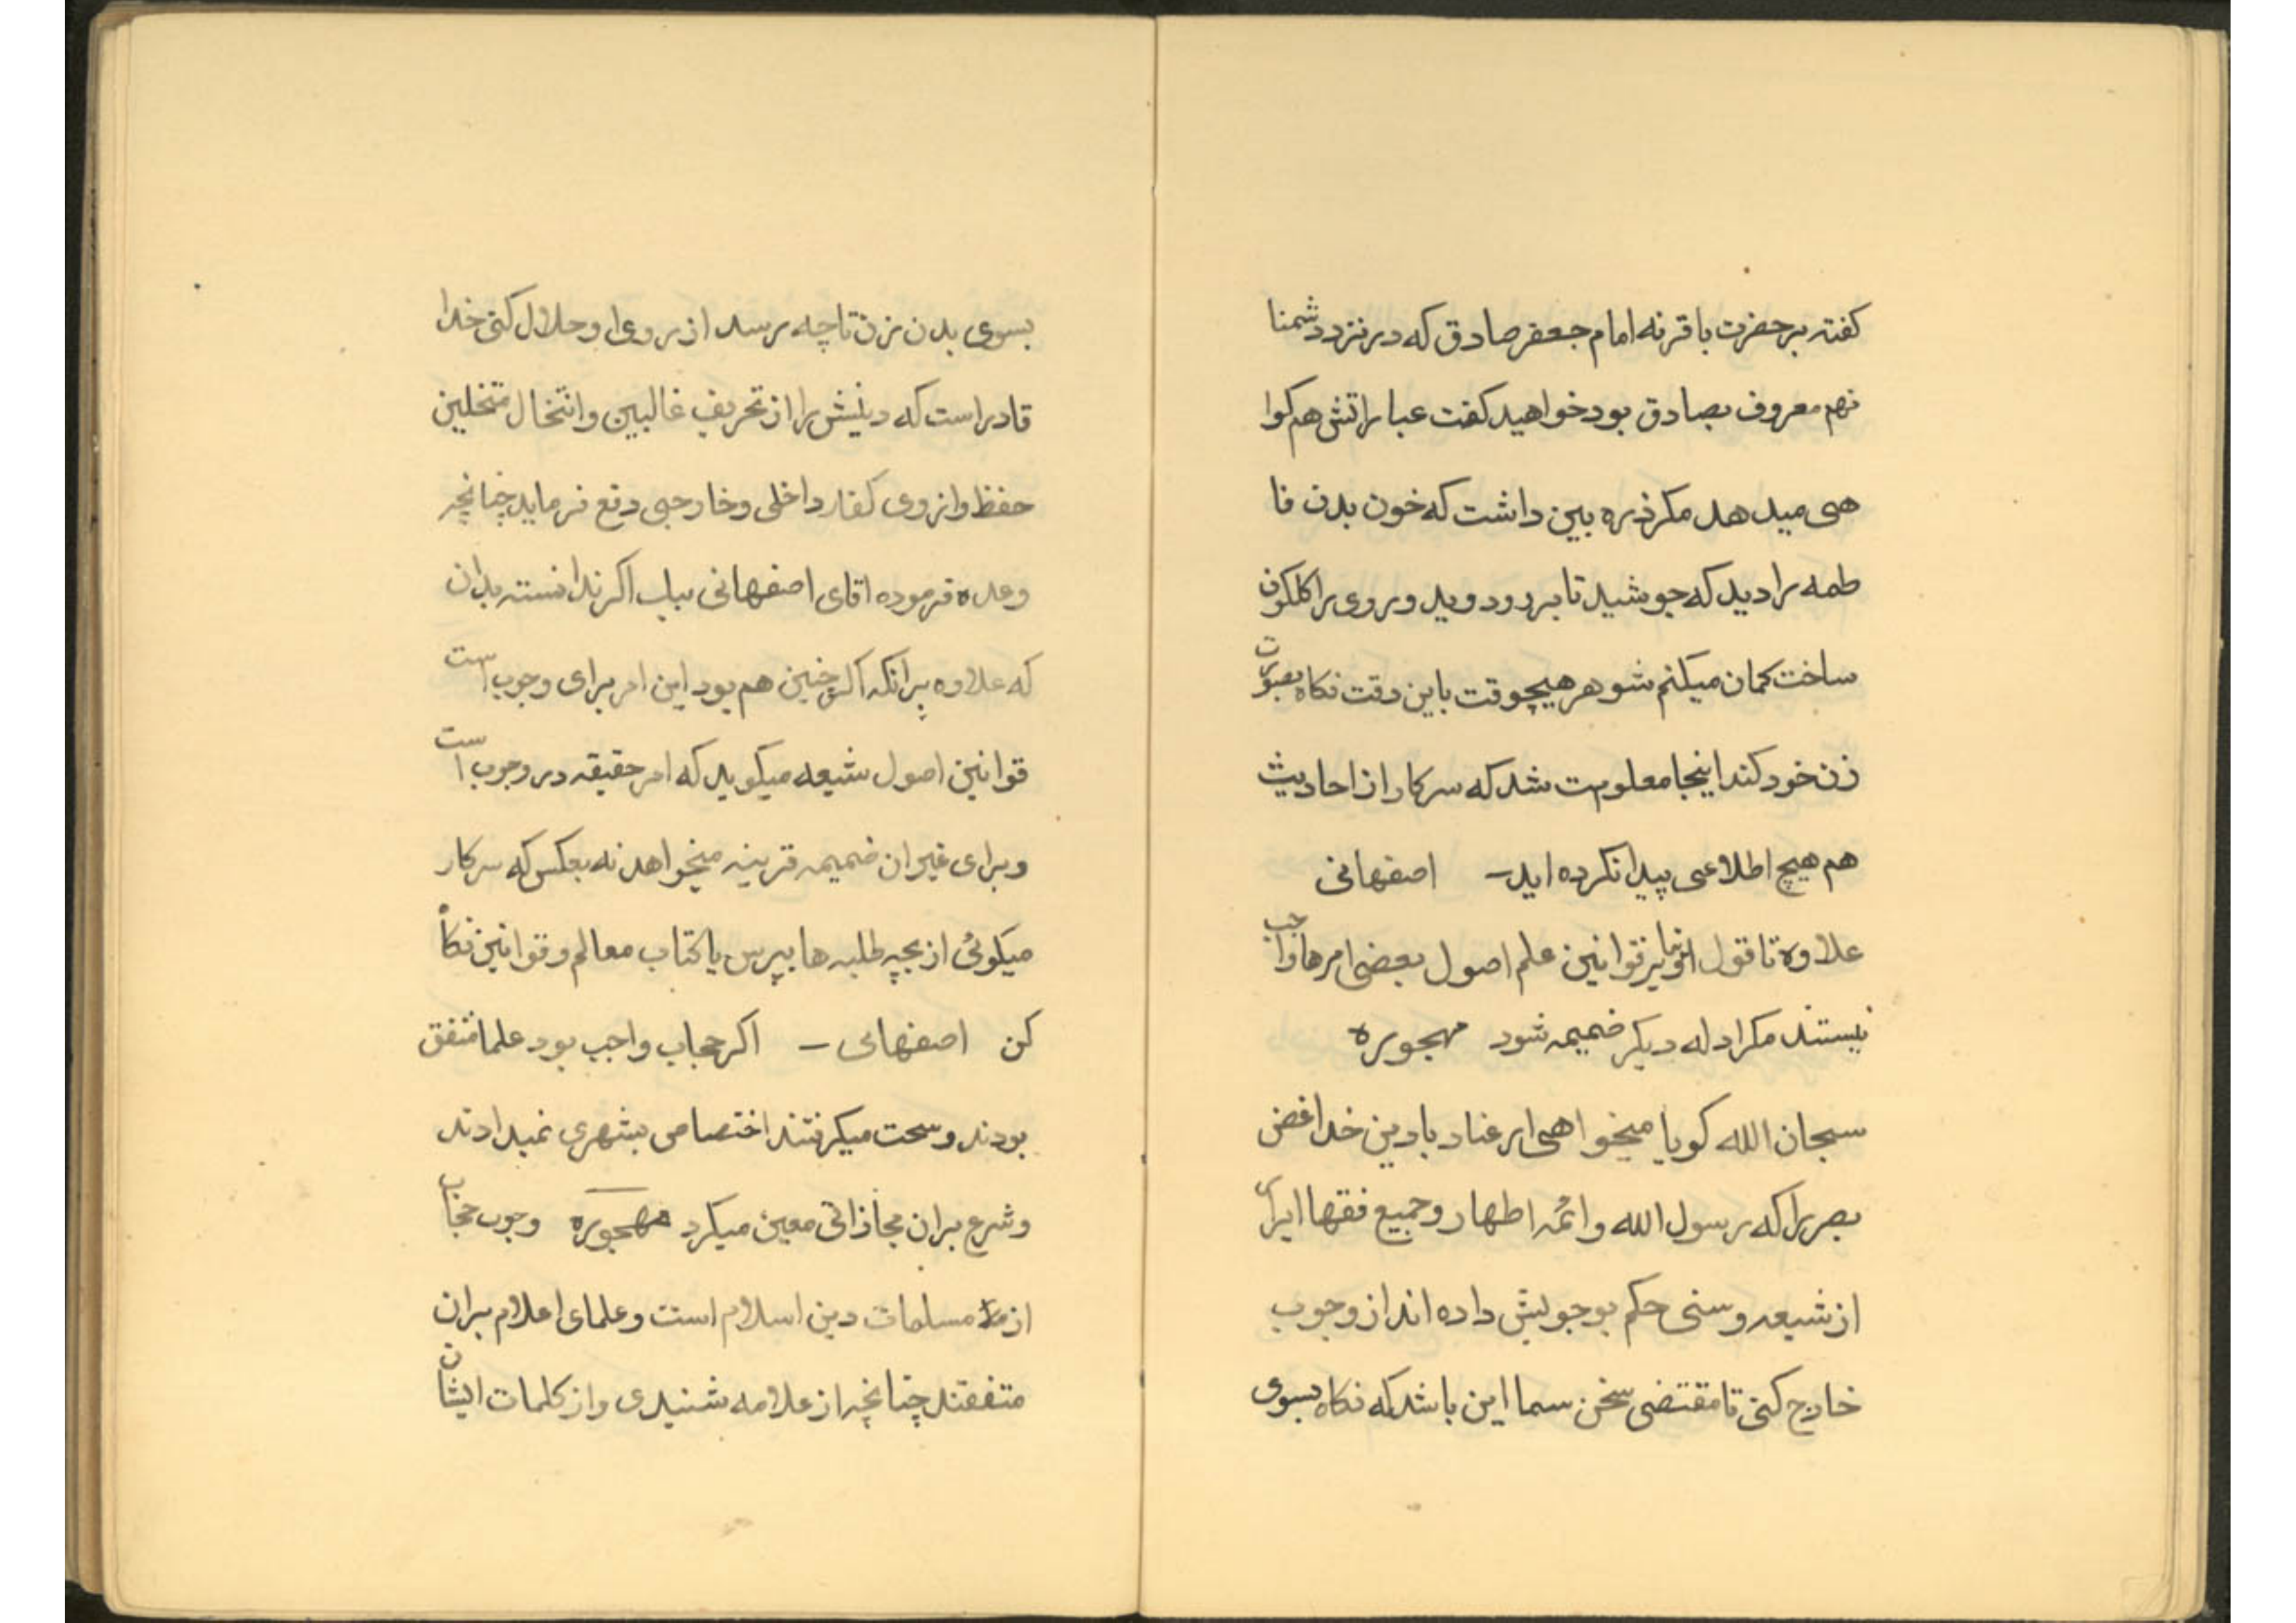 کفته بر حضرت باقر نه امام جعفر صادق که در نزد دشمنا
نهم معروف بصادق بود خواهید کفت عبا راتش هم کوا
هی میدهد مکر ذره بین داشت که خون بدن فا
طمه را دید که جوشید تا برود وید و روی را کلکون
ساخت کمان میکنم شوهر هیچوقت باین دقت نکاه بصورت
زن خود کند اینجا معلومت شد که سرکار از احادیث
هم هیچ اطلاعی پیدا نکرده اید – اصفهانی
علاوه تا قول قوانین علم اصول بعضی امرها واجب
نیستند مکر ادله دیکر ضمیمه شود مهجوره
سبحان الله کویا میخواهی از عناد با دین خدا غض
بصر را که رسول الله و ائمه اطهار و جمیع فقها ایران
از شیعه و سنی حکم بوجوبش داده اند از وجوب
خارج کنی تا مقتضی سخن سما این باشد که نکاه بسوی
بسوی بدن زن تا چه رسد از بروی را و حلال کنی خدا
قادر است که دینش را از تحریف غالبین و انتخال متخلین
حفظ و از وی کفار داخلی و خارجی دفع فرماید چنانچه
وعده فرموده اقای اصفهانی بباب اکر ندانسته بدان
که علاوه برانکه اکر چنین هم بود این امر برای وجوب است
قوانین اصول شیعه میکوید که امر حقیقه در وجوب است
و برای غیر ان ضمیمه قرینه میخواهد نه بعکس که سرکار
میکوئی از بچه طلبه ها بپرس یا کتاب معالم و قوانین نکاه
کن اصفهانی – اکر حجاب واجب بود علما متفق
بودند و سخت میکرفتند اختصاص بشهری نمیدادند
و شرع بران مجازاتی معین میکرد مهجوره وجوب حجاب
از مسلمات دین اسلام است و علمای اعلام بران
متفقند چنانچه از علامه شنیدی و از کلمات ایشان